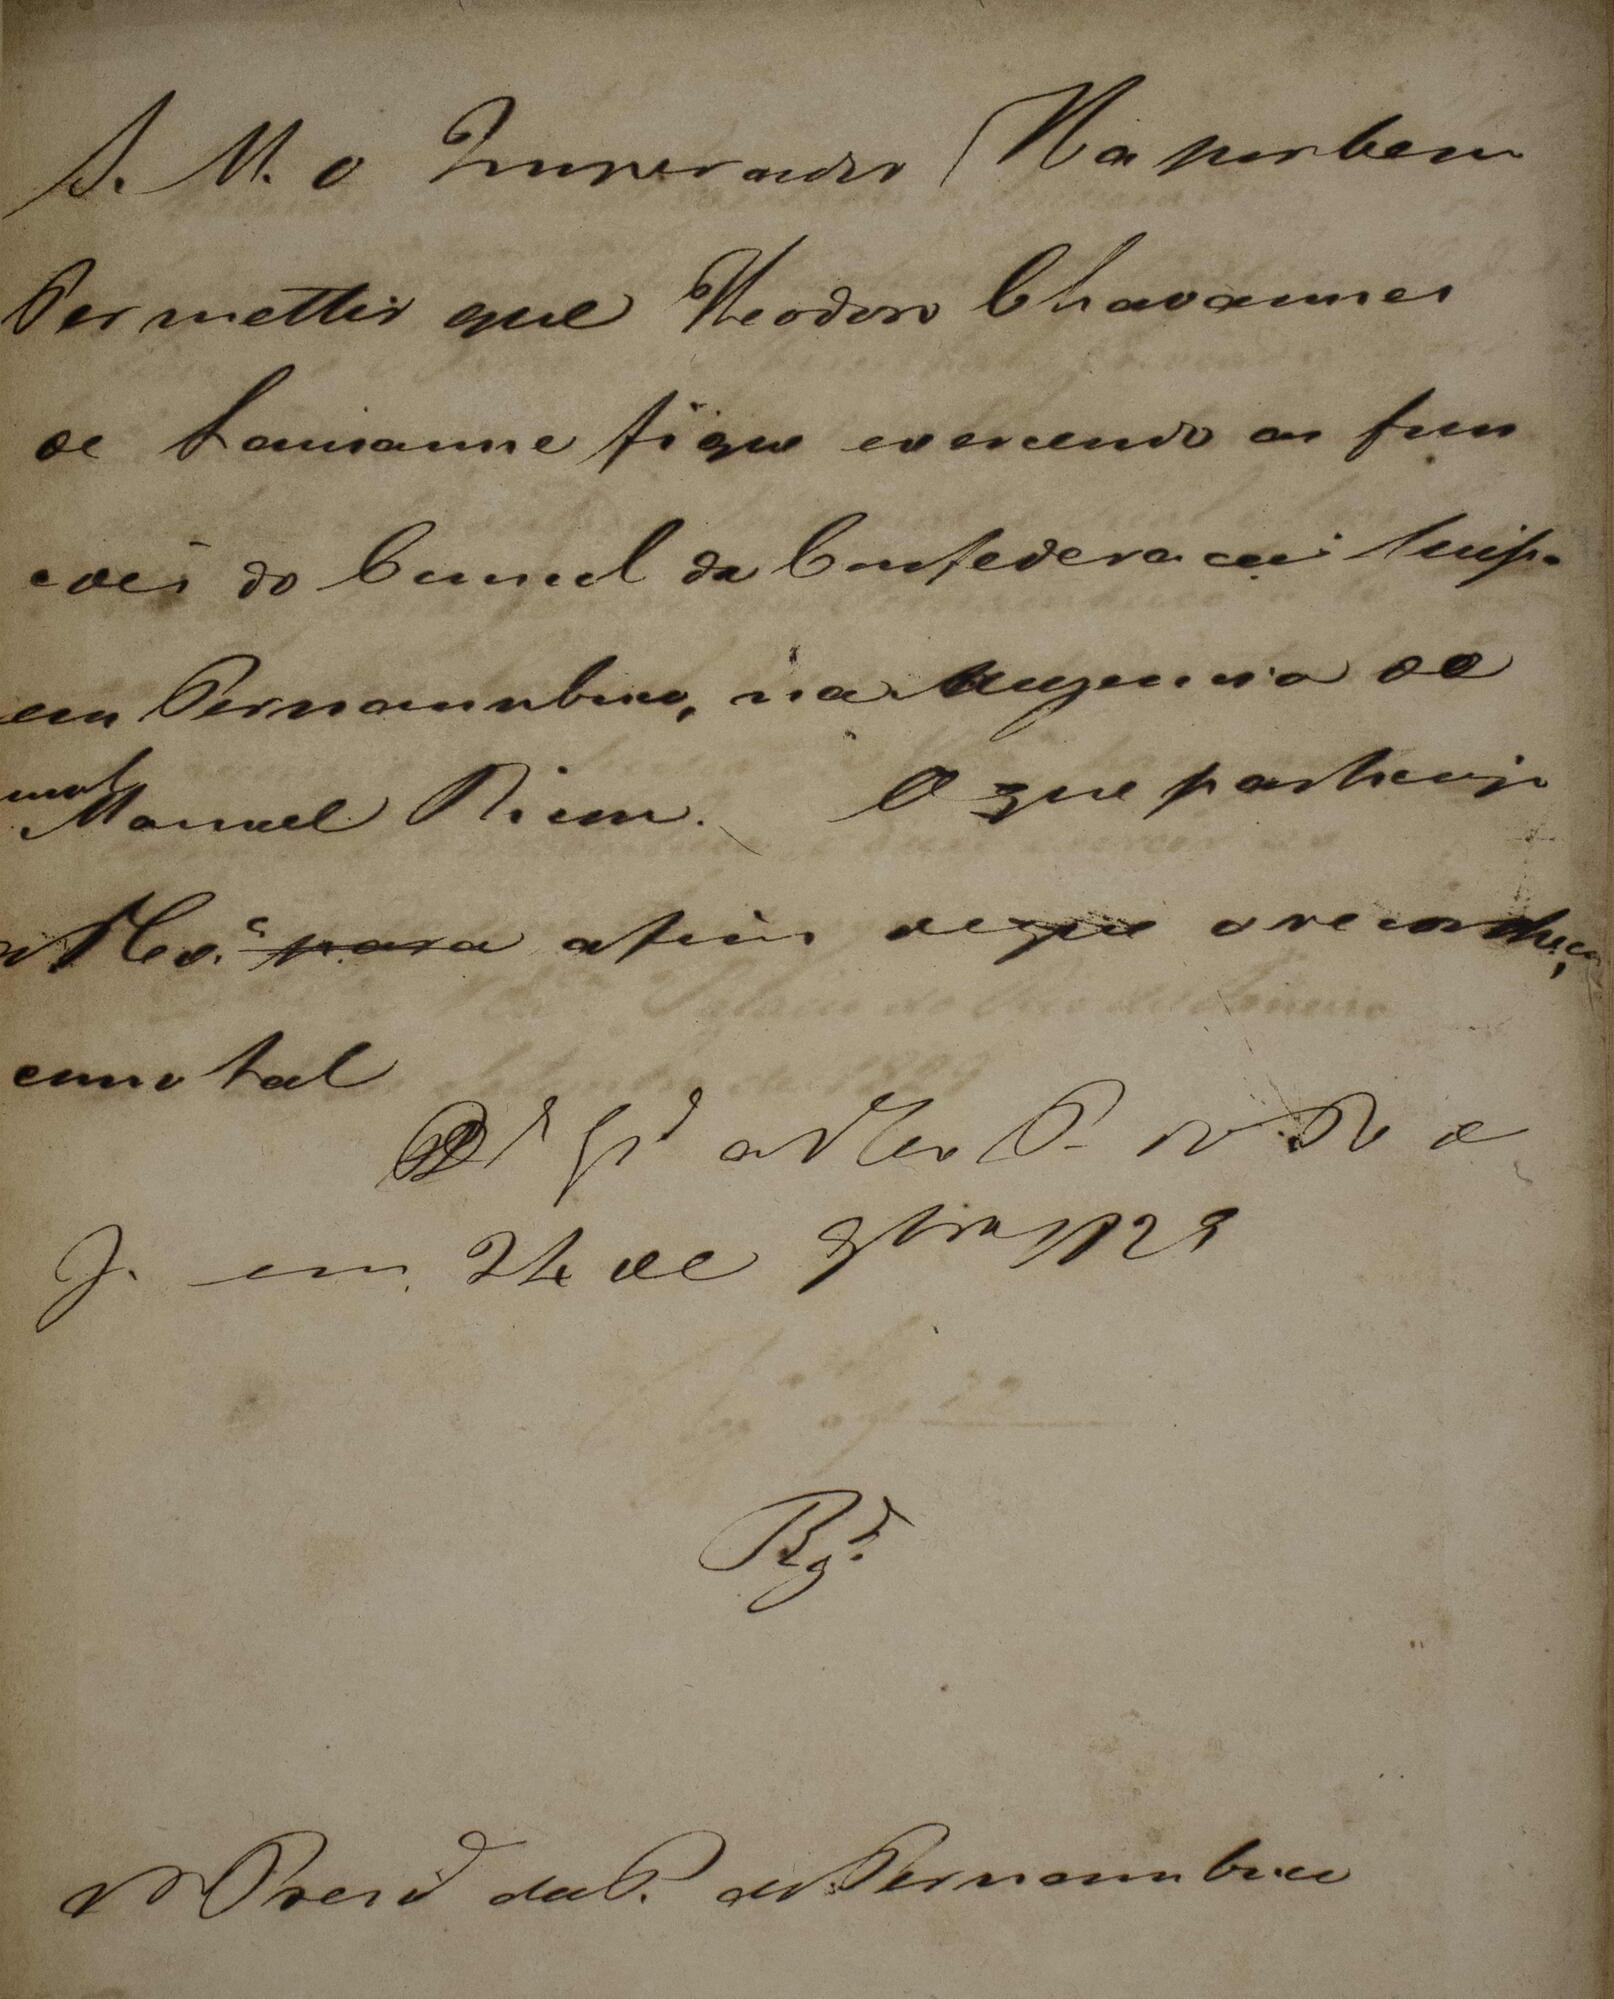 S. M. o Imperador Ha por bem
Permettir que Theodoro Chavannes
de Lausanne fique exercendo as fun
coes do Consul da Confederacaõ Suissa
em Pernambuco, na auzencia de
Manuel Riem. O que participo
a V Ex.ª para afim de que o reconheça,
como tal
D.s G.d a V Ex P. do R de
J. em 24 de 9bro 1829
Presid da P. de Pernambuco